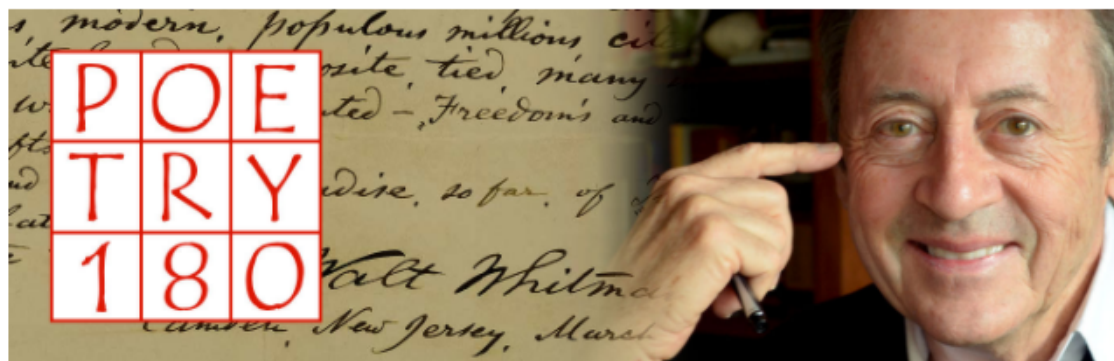 s, modern, populous millions, cit
POE
osite, tied many
ted – Freedom's and
TRY
dise, so far, of
180
Walt Whitma
Camden, New Jersey, March